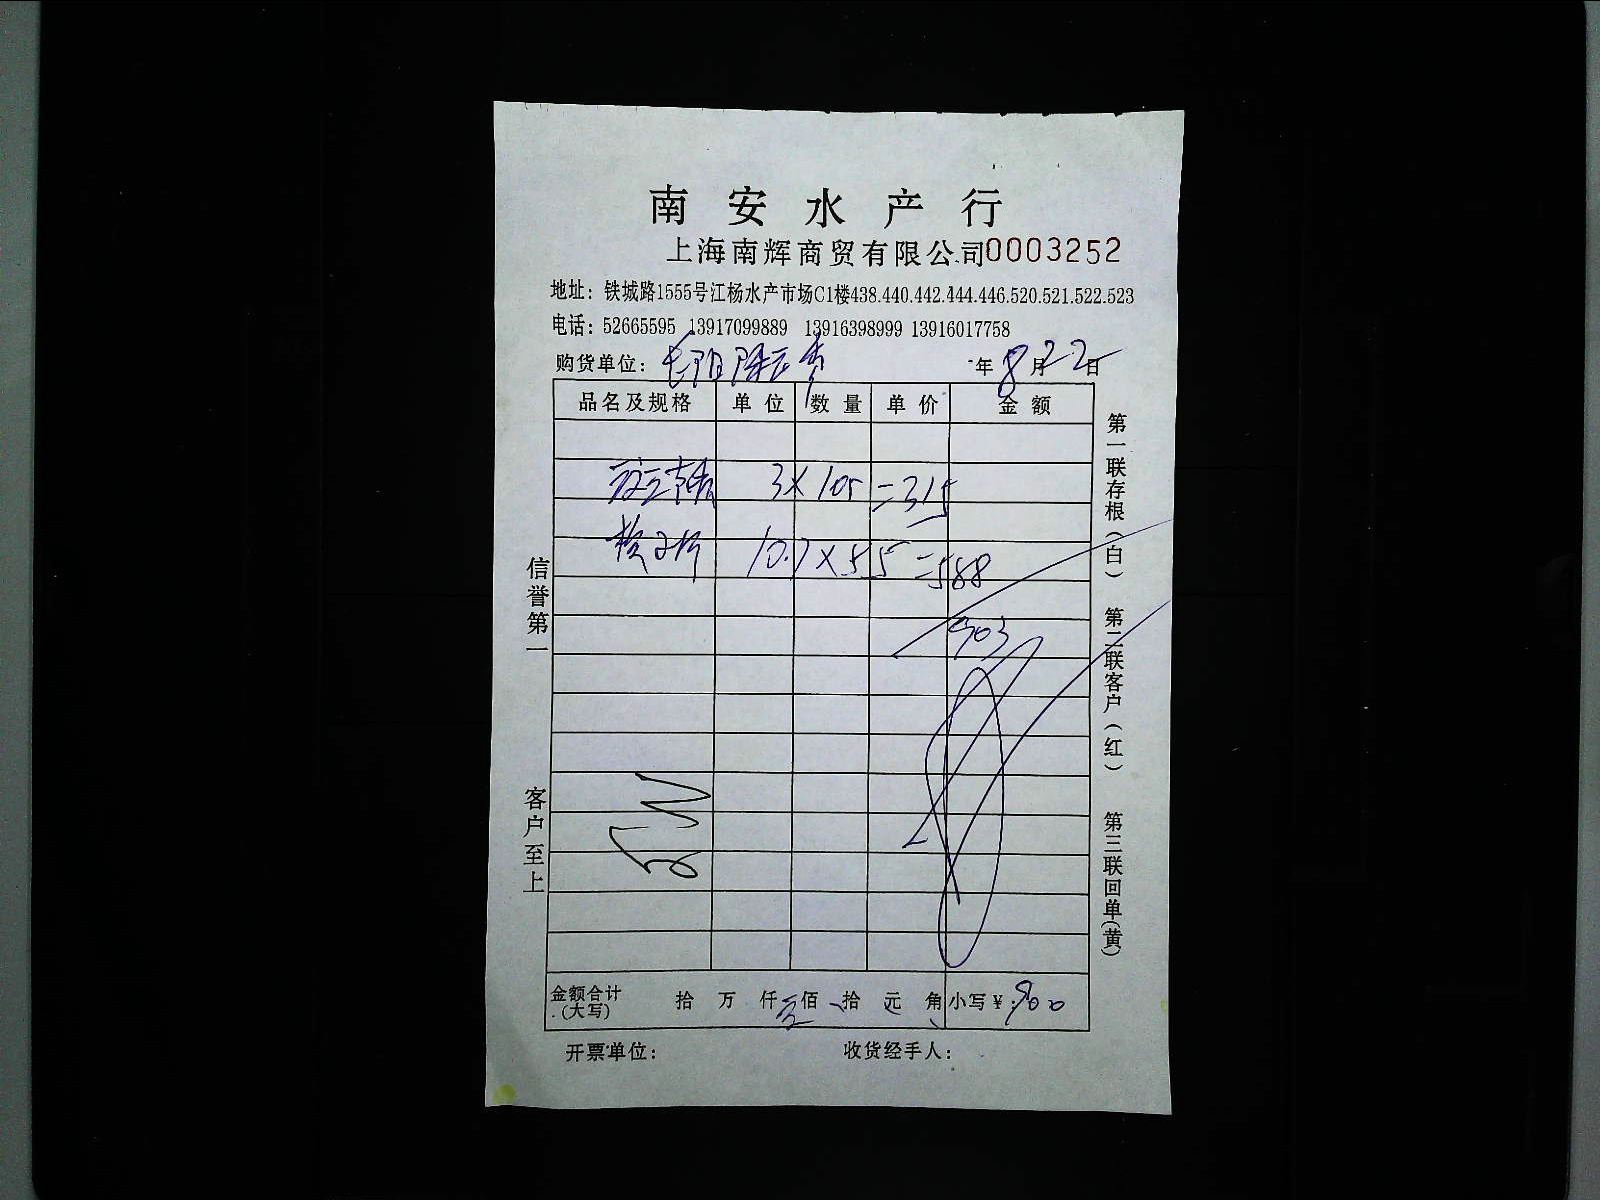 南安水产行
上海南辉商贸有限公司0003252
地址：铁城路1555号江杨水产市场C1楼438.440.442.444.446.520.521.522.523
电话：52665595 13917099889 13916398999 13916017758
购货单位：
年8月22日
品名及规格 单位 数量 单价 金额
3×105=315
10.7×55=588
903
金额合计(大写) 拾 万 仟 佰 拾 元 角 小写￥:900
开票单位： 收货经手人：
信誉第一
客户至上
第一联存根(白) 第二联客户(红) 第三联回单(黄)